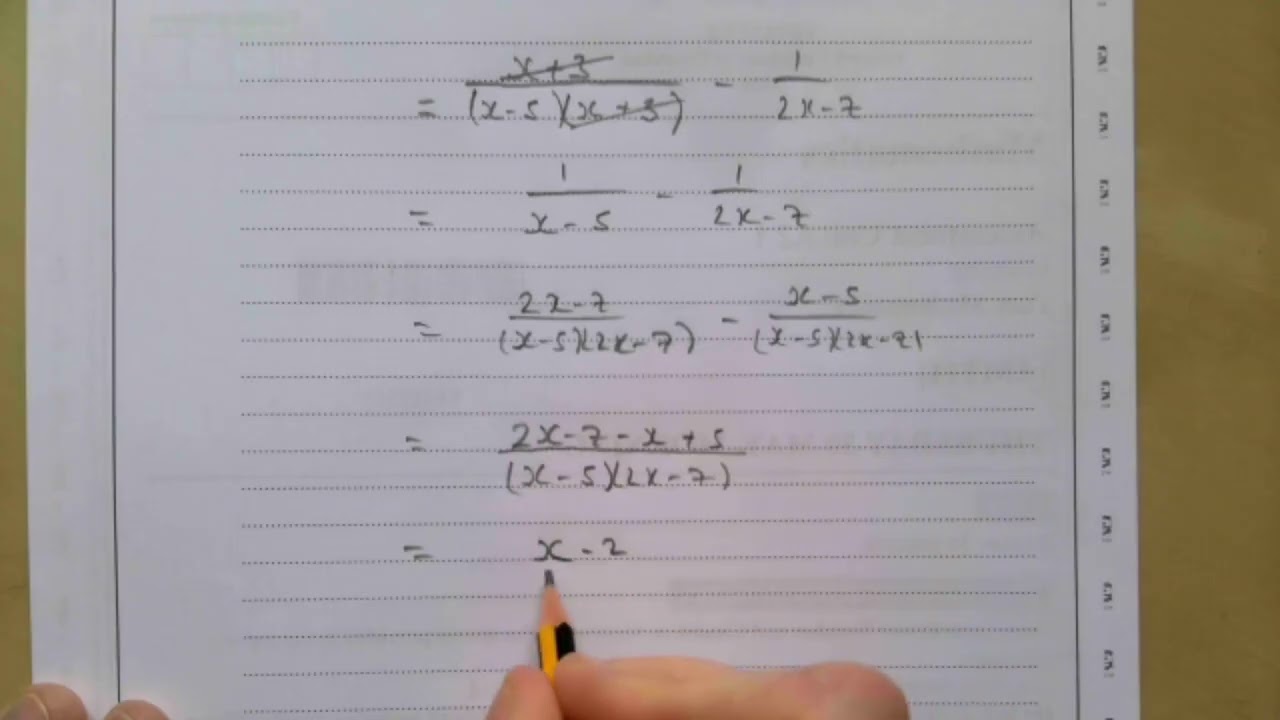 = x + 3 / (x - 5)(x + 3) - 1 / 2x - 7
= 1 / x - 5 - 1 / 2x - 7
= 2x - 7 / (x - 5)(2x - 7) - x - 5 / (x - 5)(2x - 7)
= 2x - 7 - x + 5 / (x - 5)(2x - 7)
= x - 2